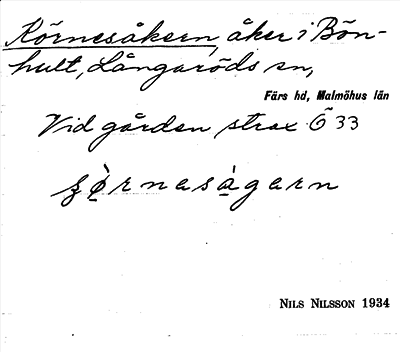 Körnesåkern, åker i Bön-
hult, Långaröds sn,
Färs hd, Malmöhus län
Vid gården strax Ö 33
ȷø̀rnasàgarn
NILS NILSSON 1934